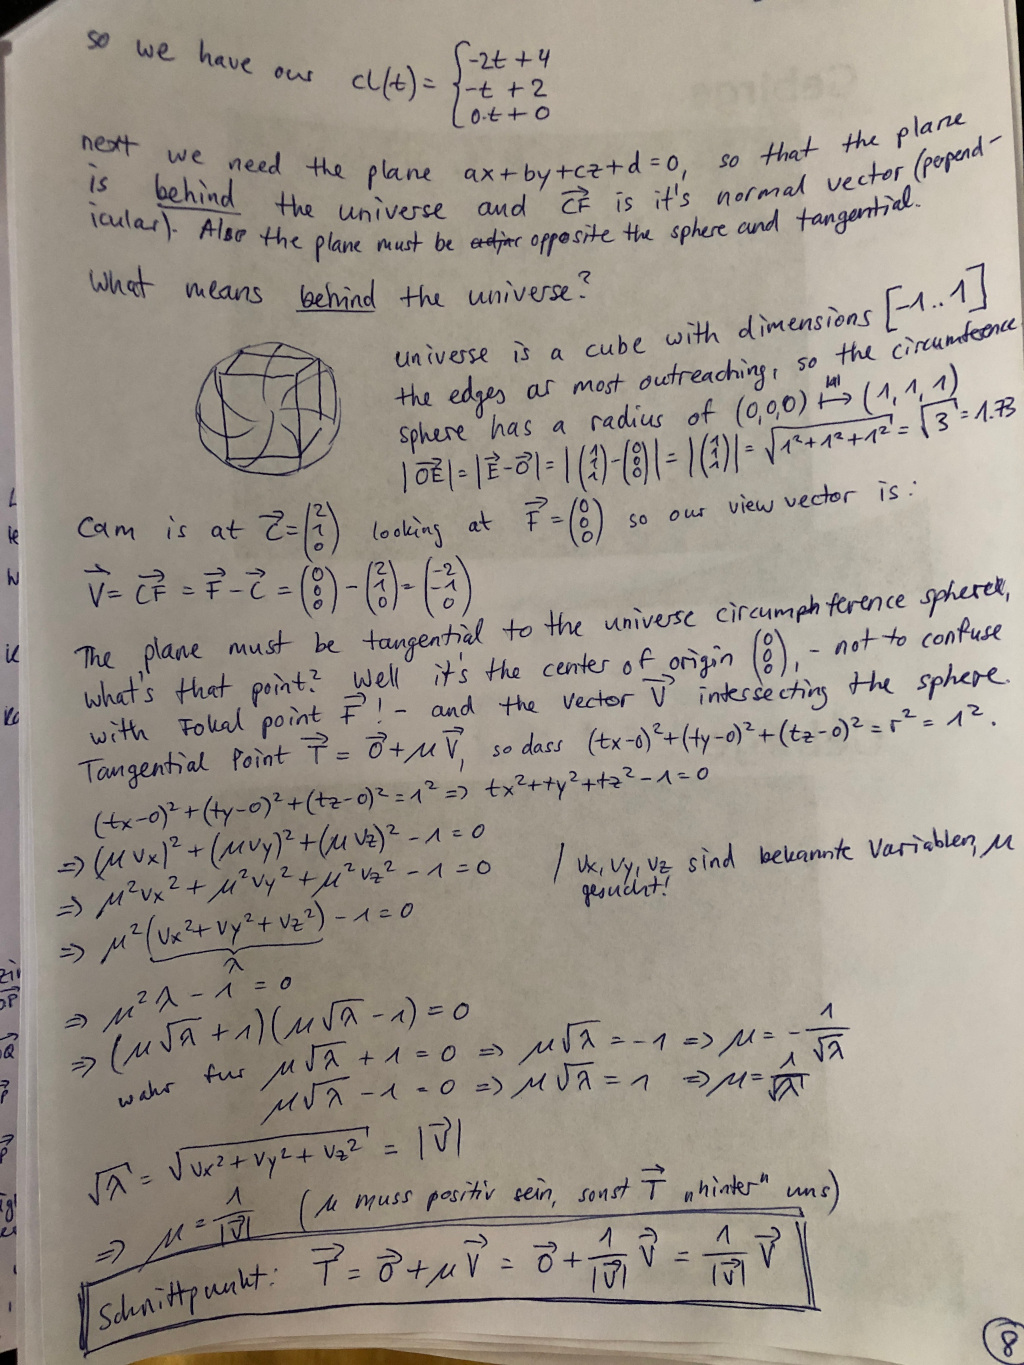 so we have our cl(t) = { -2t + 4
-t + 2
0·t + 0
next we need the plane ax + by + cz + d = 0, so that the plane
is behind the universe and CF is it's normal vector (perpend-
icular). Also the plane must be opposite the sphere and tangential.
What means behind the universe?
universe is a cube with dimensions [-1..1]
the edges ar most outreaching, so the circumference
sphere has a radius of (0,0,0) ↦ (1,1,1)
|OE| = |E - O| = |(1 1 1) - (0 0 0)| = |(1 1 1)| = √(1² + 1² + 1²) = √3 = 1.73
Cam is at C = (2 1 0) looking at F = (0 0 0) so our view vector is:
V = CF = F - C = (0 0 0) - (2 1 0) = (-2 -1 0)
The plane must be tangential to the universe circumphference sphere,
what's that point? Well it's the center of origin (0 0 0), - not to confuse
with Fokal point F! - and the vector V intersecting the sphere.
Tangential Point T = O + μV, so dass (tx-0)² + (ty-0)² + (tz-0)² = r² = 1².
(tx-0)² + (ty-0)² + (tz-0)² = 1² => tx² + ty² + tz² - 1 = 0
=> (μVx)² + (μVy)² + (μVz)² - 1 = 0
=> μ²Vx² + μ²Vy² + μ²Vz² - 1 = 0 / Vx, Vy, Vz sind bekannte Variablen, μ
gesucht!
=> μ²(Vx² + Vy² + Vz²) - 1 = 0
λ
=> μ²λ - 1 = 0
=> (μ√λ + 1)(μ√λ - 1) = 0
wahr für μ√λ + 1 = 0 => μ√λ = -1 => μ = -1/√λ
μ√λ - 1 = 0 => μ√λ = 1 => μ = 1/√λ
√λ = √(Vx² + Vy² + Vz²) = |V|
=> μ = 1/|V| (μ muss positiv sein, sonst T „hinter" uns)
Schnittpunkt: T = O + μV = O + 1/|V| V = 1/|V| V
8